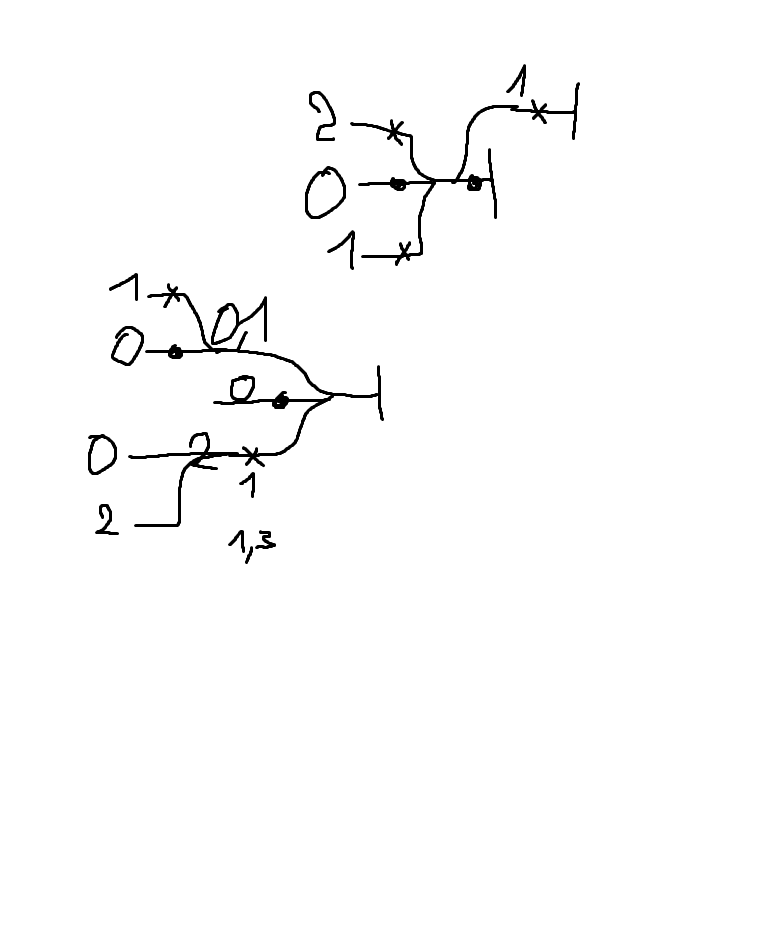 1
2
0
1
1
0,1
0
0
0
2
1
2
1,3